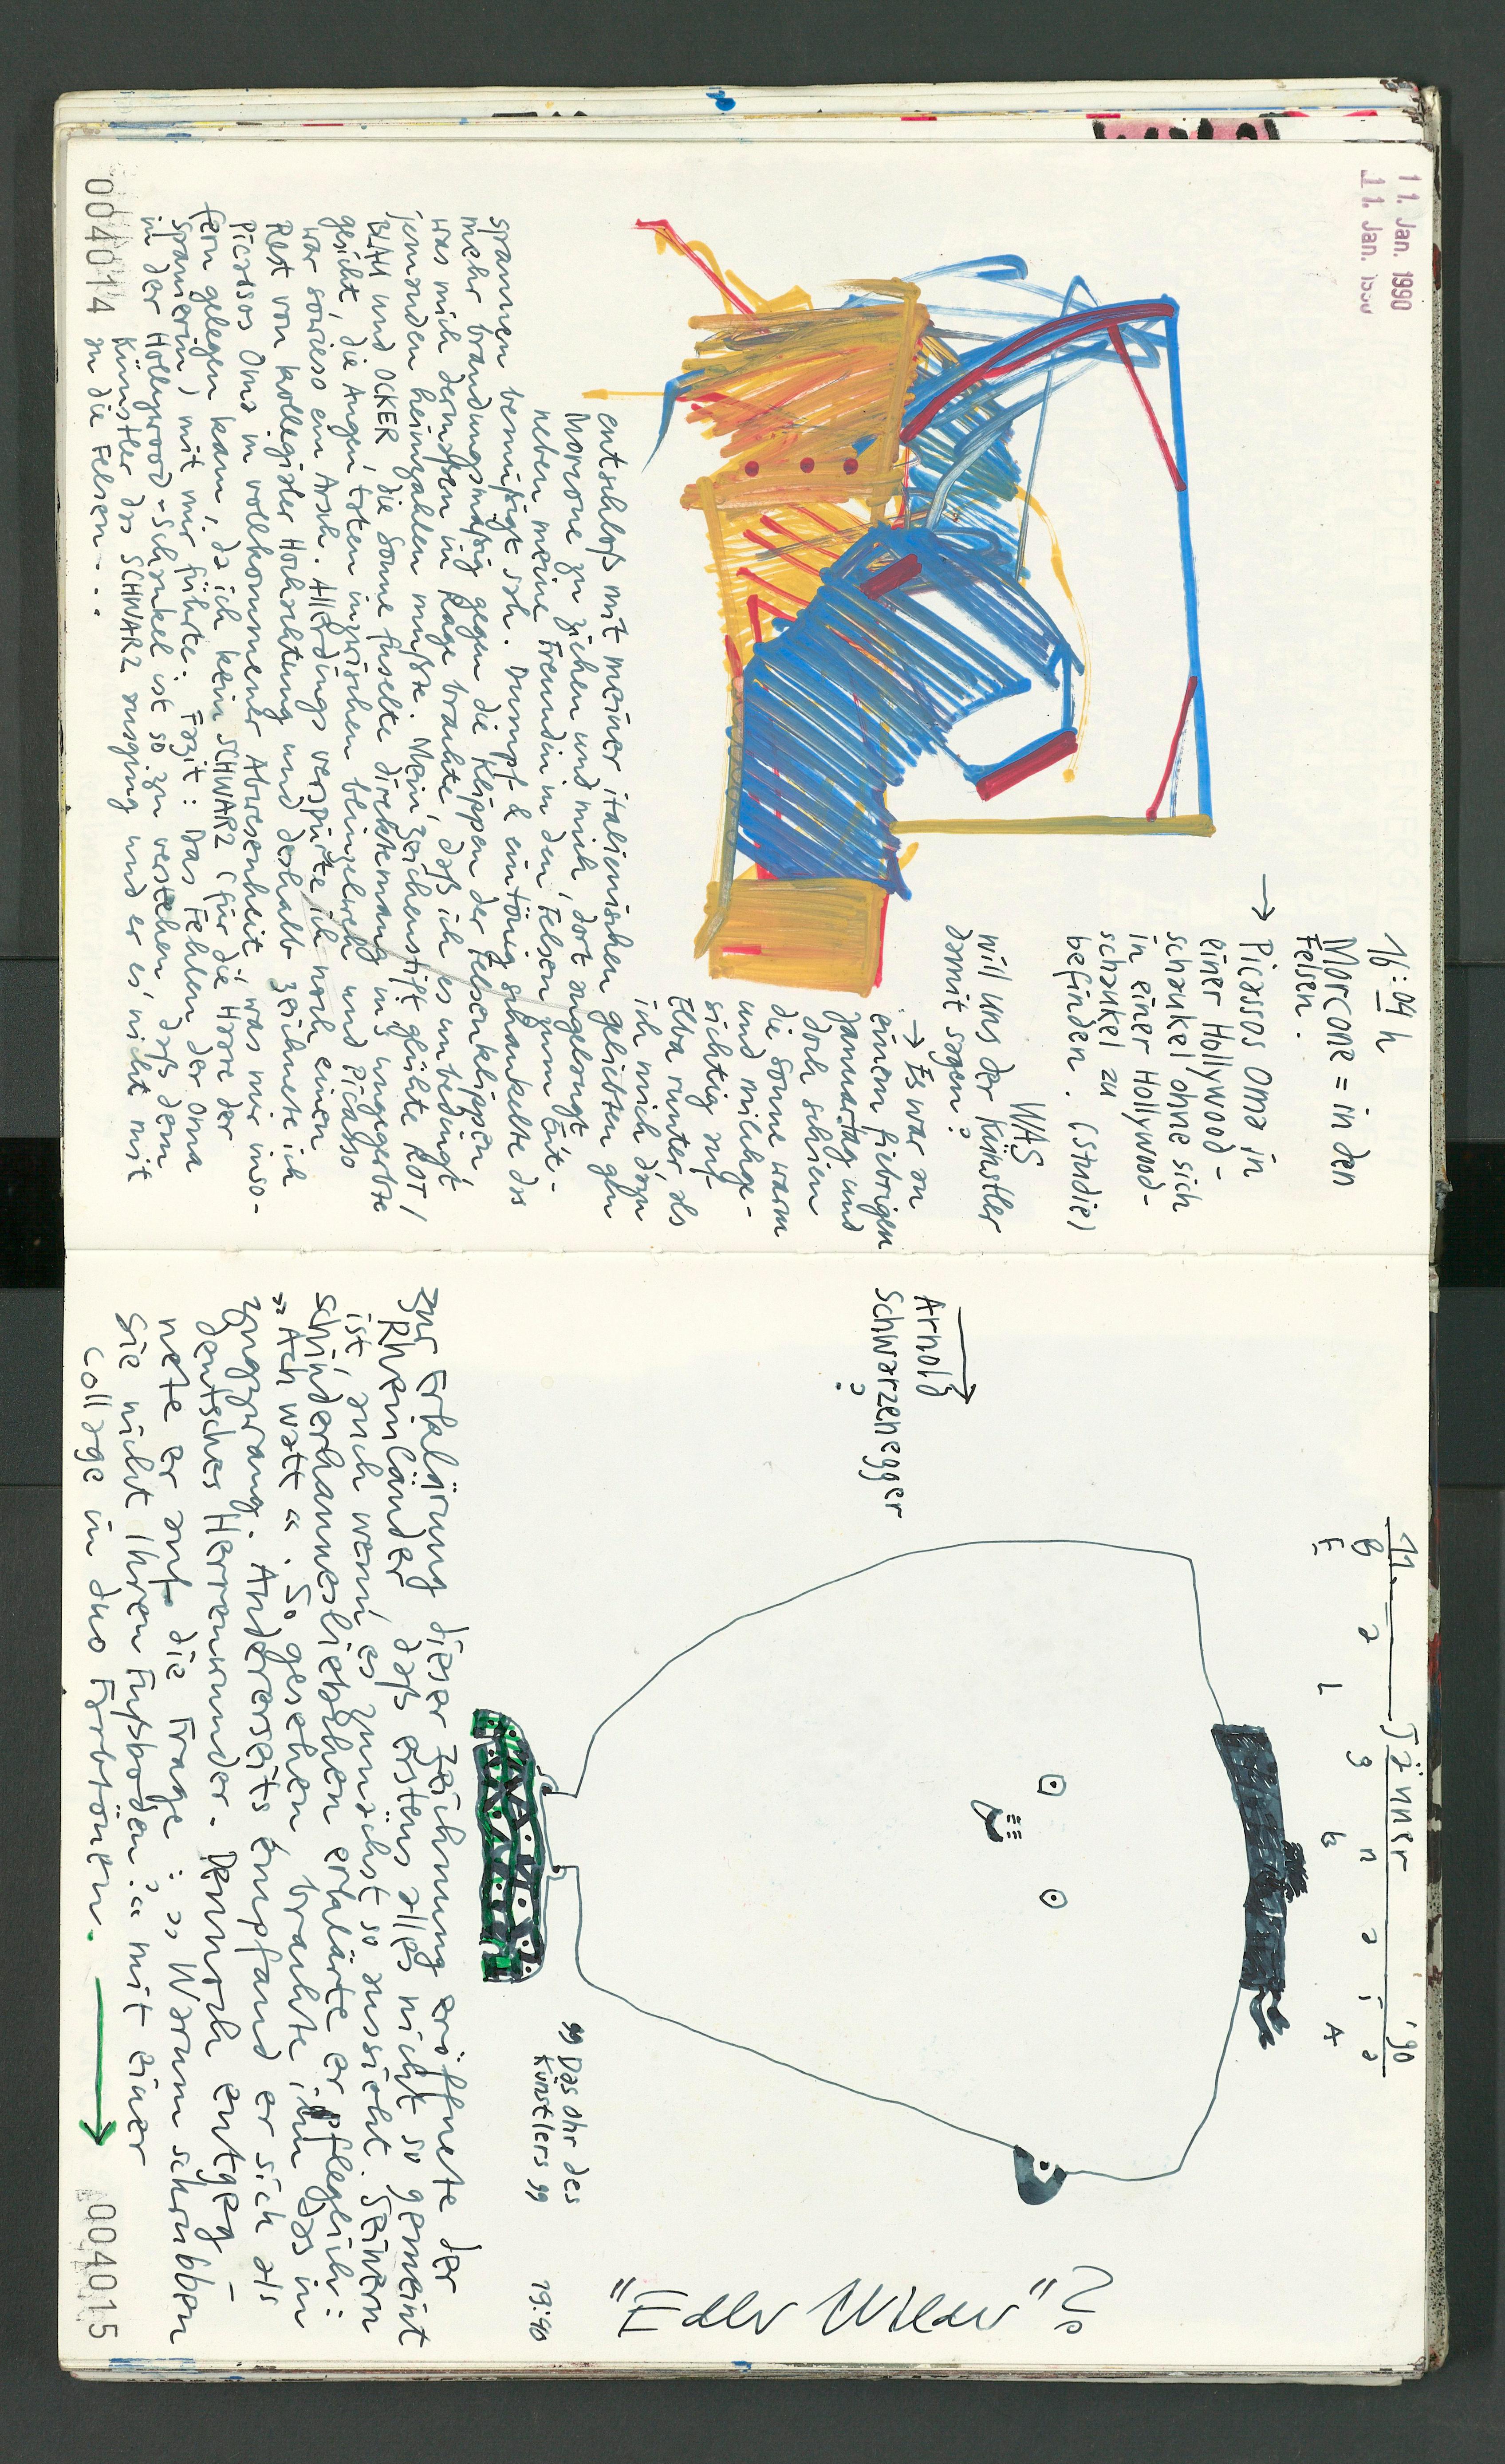 11. Jan. 1990
11. Jan. 1990
16:04 h
Morcone = in den
Felsen.
→ Picassos Oma in
einer Hollywood-
schaukel ohne sich
in einer Hollywood-
schaukel zu
befinden. (Studie)
WAS
will uns der Künstler
damit sagen?
→ Es war an
einem fiebrigen
Januartag und
doch schien
die Sonne warm
und milchge-
sichtig auf
Elba runter als
ich mich dazu
entschloß mit meiner italienischen geliebten gen
Morcone zu ziehen und mich, dort angelangt
neben meine Freundin in den Felsen zum Ent-
spannen bemüßigt sah. Dumpf & eintönig schaukelte das
mehr brandungsmäßig gegen die Klippen der Felsenklippen,
was mich dermaßen in Rage brachte, daß ich es unbedingt
jemanden heimzahlen mußte. Mein Zeichenstift glühte ROT /
BLAU und OCKER die Sonne fuselte direktemang ins ungegerbte
gesicht, die Augen toten inzwischen beinselweh und Picasso
war sowieso ein Arsch. Allerdings verspürte ich noch einen
Rest von kollegialer Hochachtung und deshalb zeichnete ich
Picassos Oma in vollkommener Abwesenheit, was mir inso-
fern gelegen kam, da ich kein SCHWARZ (für die Haare der
Spanierin) mit mir führte. Fazit: Das Fehlen der Oma
in der Hollywood-Schaukel ist so zu verstehen, daß dem
Künstler das SCHWARZ ausging und er es nicht mit
in die Felsen....
004014
11. Jänner '90
B a g n a i a
E L b A
Arnold
Schwarzenegger
?
"Edler Wilder"
"Das Ohr des
Künstlers"
19:40
Zur Erklärung dieser Zeichnung eröffnete der
Rheinländer daß erstens alles nicht so gemeint
ist, auch wenn es zunächst so aussieht. Seinem
Schinderhannesliebchen erklärte er pfleglich:
"Ach watt". So gesehen brachte ihn das in
Zugzwang. Andererseits empfand er sich als
deutsches Herrenwunder. Demnach entgeg-
nete er auf die Frage: "Warum schrubben
Sie nicht Ihren Fußboden?" mit einer
Collage in duo Farbtönen. →
004015